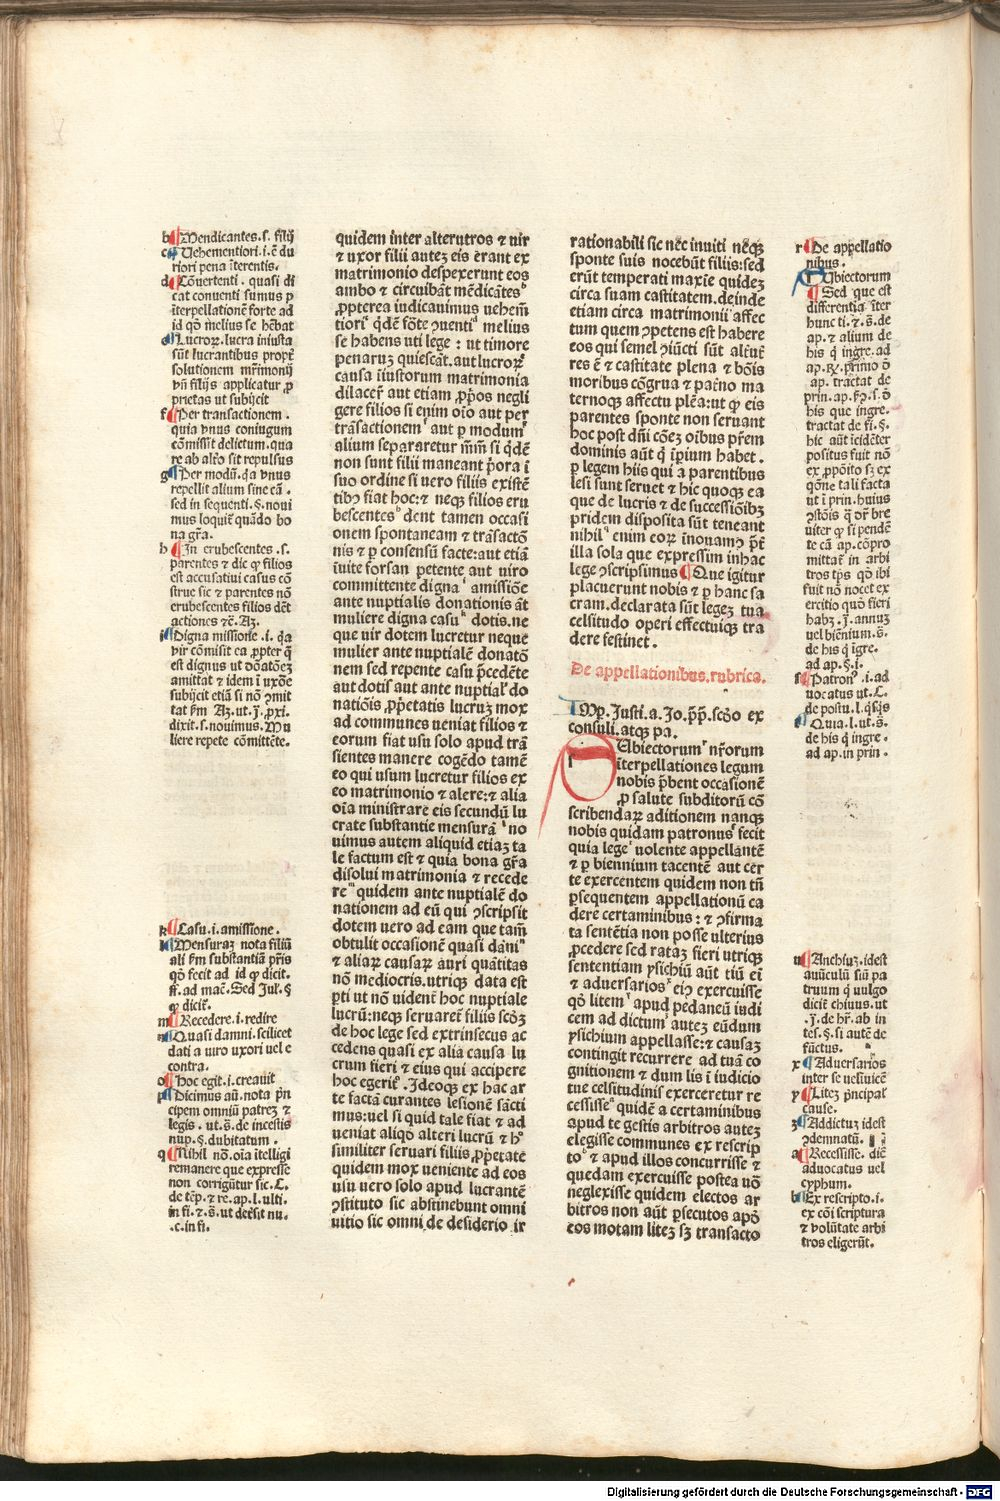 b Mendicantes.s. filij
c Uehementiori.i.ē du
riori pena īterentis.
d Cōuertenti. quasi di
cat conuenti sumus ꝑ
īterpellationē forte ad
id qd̄ melius se hēbat
Lucroꝝ. lucra iniusta
sūt lucrantibus propt̄
solutionem mr̄imonij
vn̄ filijs applicatur ꝓ
prietas ut subijcit
f Per transactionem.
quia vnus coniugum
cōmisit delictum. qua
re ab alt̄o sit repulsus
g Per modū. qa vnus
repellit alium sine cā.
sed in sequenti.§. noui
mus loquit̄ quādo bo
na gr̄a.
h In erubescentes.s.
parentes ⁊ dic ꝙ filios
est accusatiui casus cō
strue sic ⁊ parentes nō
erubescentes filios dēt
actiones ⁊c̄. Az.
i Digna missione.i. qa
vir cōmisit ea ꝓpter q̄
est dignus ut dōatōeꝫ
amittat ⁊ idem ī vxōe
subijcit etiā si nō ꝯmit
tat ẜm Az. ut.j. ꝓxi.
dixit.s. nouimus. Mu
liere repete cōmittēte.
k Casu.i. amissione.
l Mensuraꝫ nota filiū
ali ẜm substantiā pr̄is
qd̄ fecit ad id ꝙ dicit.
ff. ad mac̄. Sed Jul.§
ꝙ dicit̄.
m Recedere.i. redire
n Quasi damni. scilicet
dati a uiro uxori uel e
contra.
o Hoc egit.i. creauit
p Dicimus aū. nota pn̄
cipem omniū patreꝫ ⁊
legis. ut.s̄. de incestis
nup.§. dubitatum.
q Nihil nō. oīa ītelligi
remanere que expresse
non corrigūtur sic. C.
de tēp. ⁊ re. ap. l. ulti.
in fi. ⁊.s̄. ut deesit nu.
.c. in fi.
quidem inter alterutros ⁊ uir
⁊ uxor filii auteꝫ eis erant ex
matrimonio despexerunt eos
ambo ⁊ circuibāt mēdicātes
ꝓpterea iudicauimus uehem̄
tiori q̄dē fōte ꝯuenti melius
se habens uti lege : ut timore
penaruꝫ quiescāt. aut lucroꝝ
causa iniustorum matrimonia
dilacer̄ aut etiam ꝓp̄os negli
gere filios si enim oīo aut per
trāsactionem aut ꝑ modum
alium separaretur mr̄m̄ si q̄dē
non sunt filii maneant p̄ora ī
suo ordine si uero filiis existē
tibꝫ fiat hoc: ⁊ neqꝫ filios eru
bescentes dent tamen occasi
onem spontaneam ⁊ trāsactō
nis ⁊ ꝑ consensū facte: aut etiā
inuite forsan petente aut uiro
committente digna amissiōe
ante nuptialis donationis āt
muliere digna casu dotis. ne
que uir dotem lucretur neque
mulier ante nuptialē donatō
nem sed repente casu p̄cedēte
aut dotis aut ante nuptial̄ do
natiōis ꝓp̄etatis lucruꝫ mox
ad communes ueniat filios ⁊
eorum fiat usu solo apud trā
sientes manere cogēdo tamē
eo qui usum lucretur filios ex
eo matrimonio ⁊ alere: ⁊ alia
oīa ministrare eis secundū lu
crate substantie mensurā no
uimus autem aliquid etiaꝫ ta
le factum est ⁊ quia bona gr̄a
disolui matrimonia ⁊ recede
re quidem ante nuptialē do
nationem ad eū qui ꝯscripsit
dotem uero ad eam que tam̄
obtulit occasionē quasi dāni
⁊ aliaꝝ causaꝝ auri quātitas
nō mediocris. utriqꝫ data est
p̄ti ut nō uidenē hoc nuptiale
lucrū: neqꝫ seruaret̄ filiis scōꝫ
de hoc lege sed extrinsecus ac
cedens quasi ex alia causa lu
crum fieri ⁊ eius qui accipere
hoc egerit̄. Jdeoqꝫ ex hac ar
te factā curantes lesionē sācti
mus: uel si quid tale fiat ⁊ ad
ueniat aliqd̄ alteri lucrū ⁊ h°
similiter seruari filiis ꝓp̄etate
quidem mox ueniente ad eos
usu uero solo apud lucrantē
ꝯstituto sic abstinebunt omni
uitio sic omni de desiderio ir
rationabili sic nec inuiti neqꝫ
sponte suis nocebūt filiis: sed
erūt temperati maxīe quideꝫ
circa suam castitatem. deinde
etiam circa matrimonii affec
tum quem ꝯpetens est habere
eos qui semel ꝯiūcti sūt alt̄ut̄
res ē ⁊ castitate plena ⁊ bōis
moribus cōgrua ⁊ pat̄no ma
ternoqꝫ affectu plēa: ut ꝙ eis
parentes sponte non seruant
hoc post dn̄i cōeꝫ oibus pr̄em
dominis aūt q̄ īp̄ium habet.
ꝑ legem hiis qui a parentibus
lesi sunt seruet ⁊ hic quoqꝫ ea
que de lucris ⁊ de successiōibꝫ
pridem disposita sūt teneant
nihil enim eoꝝ īnouamꝰ p̄t̄
illa sola que expressim in hac
lege ꝯscripsimus Que igitur
placuerunt nobis ⁊ ꝑ hanc sa
cram. declarata sūt legeꝫ tua
celsitudo operi effectuiqꝫ tra
dere festinet.
De appellationibus. rubrica.
Imꝑ. Justi. a. Jo. p̄p̄. scd̄o ex
consuli. atqꝫ pa.
Sūbiectorum nr̄orum
īterpellationes legum
nobis p̄bent occasionē
ꝓ salute subditorū cō
scribendaꝝ aditionem nanqꝫ
nobis quidam patronus fecit
quia lege uolente appellantē
⁊ ꝑ biennium tacentē aut cer
te exercentem quidem non tn̄
ꝑsequentem appellationū ca
dere certaminibus : ⁊ ꝯfirma
ta sentētia non posse ulterius
ꝓcedere sed rataꝫ fieri utriqꝫ
sententiam ysichiū aūt tiū ei
⁊ aduersarios eiꝰ exercuisse
qd̄ litem apud pedaneū iudi
cem ad dictum auteꝫ eūdum
ysichium appellasse: ⁊ causaꝫ
contingit recurrere ad tuā co
gnitionem ⁊ dum lis ī iudicio
tue celsitudinis exerceretur re
cessisse quidē a certaminibus
apud te gestis arbitros auteꝫ
elegisse communes ex rescrip
to ⁊ apud illos concurrisse ⁊
quedam exercuisse postea uō
neglexisse quidem electos ar
bitros non aūt ꝑsecutos apd̄
eos motam liteꝫ sꝫ transacto
r De appellatio
nibus.
Subiectorum
Sed que est
differentia īter
hunc ti. ⁊.s̄. de
ap. ⁊ alium de
his q̄ ingre. ad
ap. ℞. primo ō
ap. tractat de
prin. ap. ẜo. s. ō
his que ingre.
tractat de fi.§.
hic aūt īcidēter
positus fuit nō
ex ꝓpōito sꝫ ex
qōne tali facta
ut ī prin. huius
ꝯstōis q̄ dr̄ bre
uiter ꝙ si pendē
te cā ap. cōpro
mittat̄ in arbi
tros tꝑs qd̄ ibi
fuit nō nocet ex
ercitio quō fieri
habꝫ. j. annuꝫ
uel biēnium. s̄.
de his q̄ īgre.
ad ap.§.i.
s Patron.i. ad
uocatus ut. C.
de postu. l. q̄sqs
t Quia. l. ut.s̄.
de his q̄ ingre.
ad ap. in prin.
u Anchiuꝫ. idest
auūculū siū pa
truum q̄ uulgo
dicit̄ chiuus. ut
.j. de hr̄. ab in
tes.§. si autē de
fūctus.
x Aduersarios
inter se
y Liteꝫ pn̄cipal̄
cause.
z Addictuꝫ idest
ꝯdemnatū.
a Recessisse. dic̄
aduocatus uel
cyphum.
b Ex rescripto.i.
ex cōi scriptura
⁊ volūtate arbi
tros eligerūt.
Digitalisierung gefördert durch die Deutsche Forschungsgemeinschaft - DFG